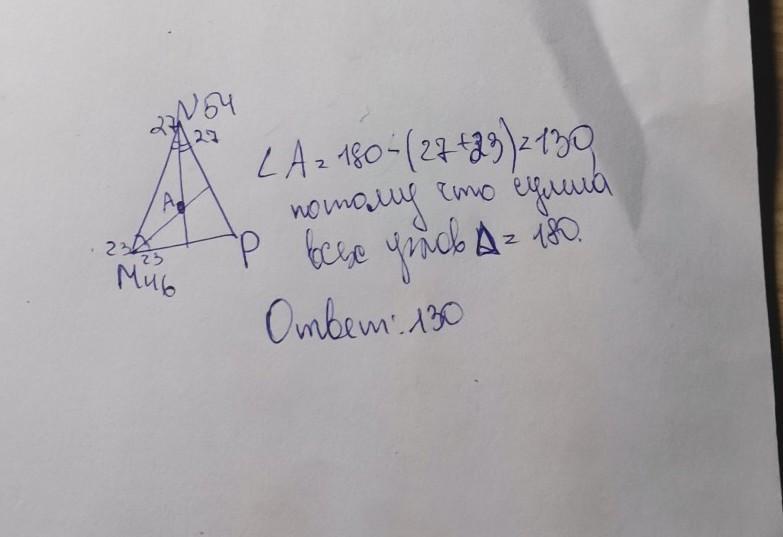 N 54
27
27
A
23
23
M 46
P
∠ A = 180 - (27+23) = 130,
потому что сумма
всех углов Δ = 180.
Ответ: 130